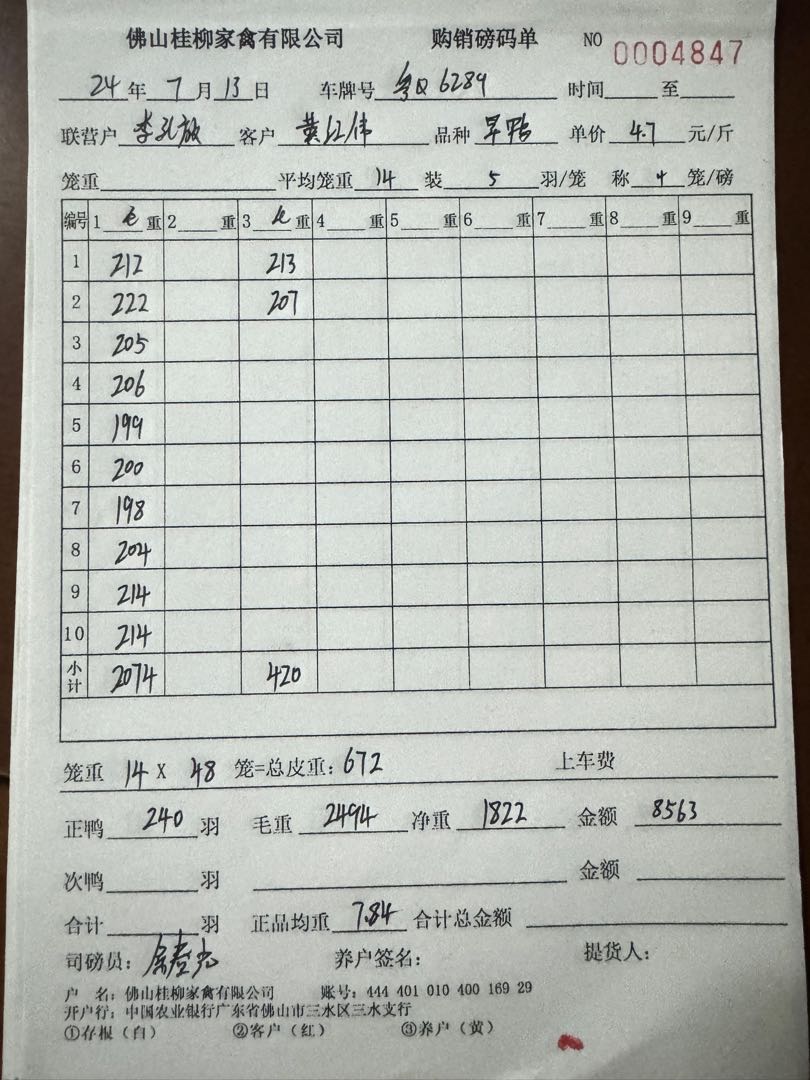 佛山桂柳家禽有限公司 购销磅码单 NO 0004847
24年7月13日 车牌号 粤Q6289 时间 至
联营户 客户 黄红伟 品种 早鸭 单价 4.7 元/斤
笼重 平均笼重 14 装 5 羽/笼 称 4 笼/磅
编号 1 毛 重 2 重 3 毛 重 4 重 5 重 6 重 7 重 8 重 9 重
1 212 213
2 222 207
3 205
4 206
5 199
6 200
7 198
8 204
9 214
10 214
小计 2074 420
笼重 14 X 48 笼=总皮重：672 上车费
正鸭 240 羽 毛重 2494 净重 1822 金额 8563
次鸭 羽 金额
合计 羽 正品均重 7.84 合计总金额
司磅员： 养户签名： 提货人：
户 名：佛山桂柳家禽有限公司 账号：444 401 010 400 169 29
开户行：中国农业银行广东省佛山市三水区三水支行
①存根（白） ②客户（红） ③养户（黄）